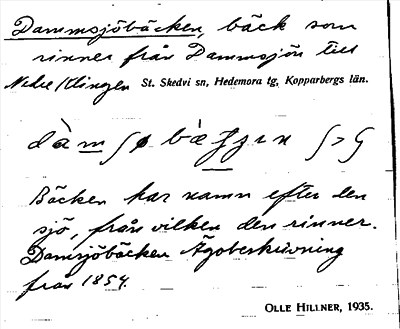 Dammsjöbäcken, bäck som
rinner från Dammsjön till
Nedre Klingen St. Skedvi sn, Hedemora tg, Kopparbergs län.
Bäcken har namn efter den
sjö, från vilken den rinner.
Damsjöbäcken Ägobeskrivning
från 1854.
OLLE HILLNER, 1935.